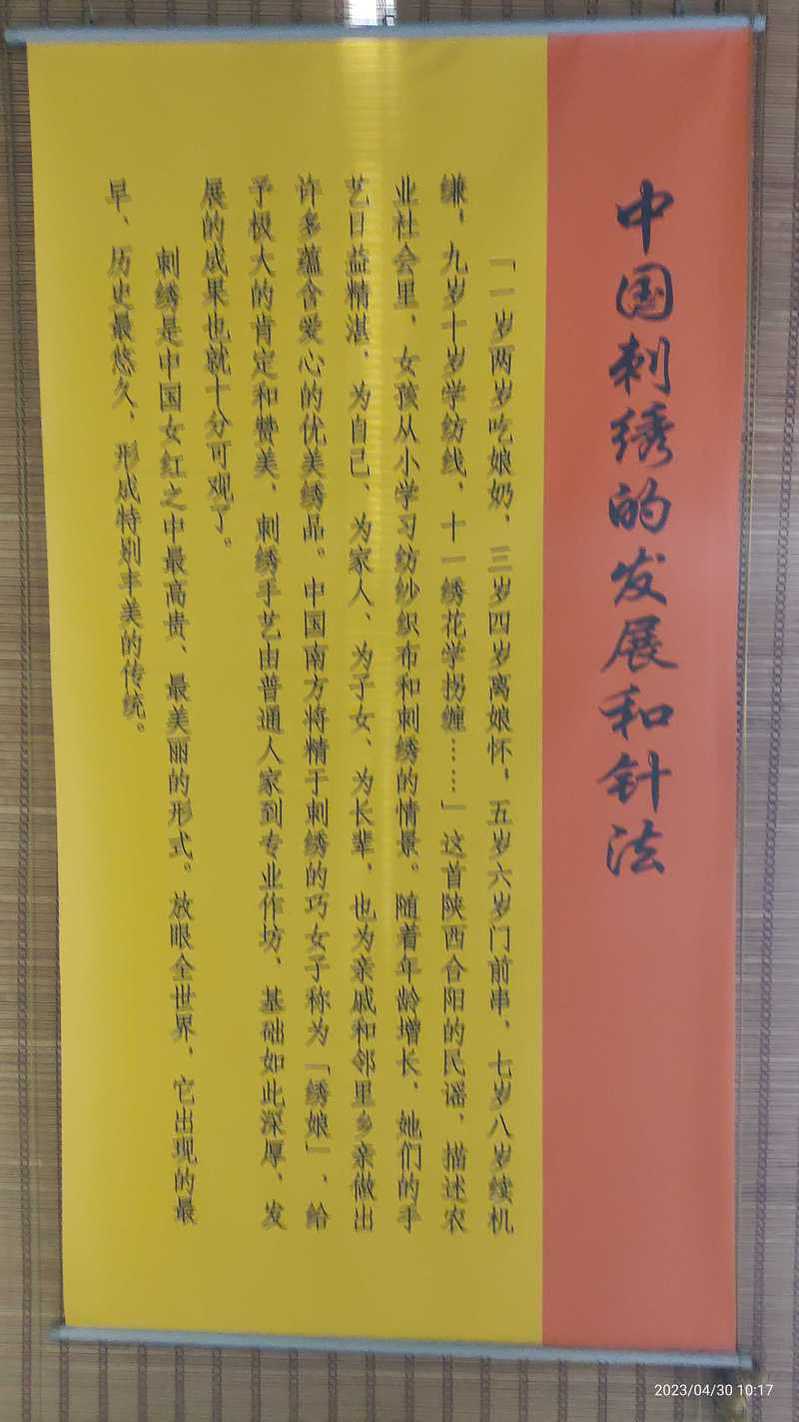 中国刺绣的发展和针法
「一岁两岁吃娘奶、三岁四岁离娘怀，五岁六岁门前串、七岁八岁续机
缣，九岁十岁学纺线、十一绣花学拐缠……」这首陕西合阳的民谣、描述农
业社会里、女孩从小学习纺纱织布和刺绣的情景。随着年龄增长、她们的手
艺日益精湛、为自己、为家人、为子女、为长辈、也为亲戚和邻里乡亲做出
许多蕴含爱心的优美绣品。中国南方将精于刺绣的巧女子称为「绣娘」、给
予极大的肯定和赞美、刺绣手艺由普通人家到专业作坊、基础如此深厚、发
展的成果也就十分可观了。
刺绣是中国女红之中最高贵、最美丽的形式。放眼全世界，它出现的最
早、历史最悠久、形成特别丰美的传统。
2023/04/30 10:17